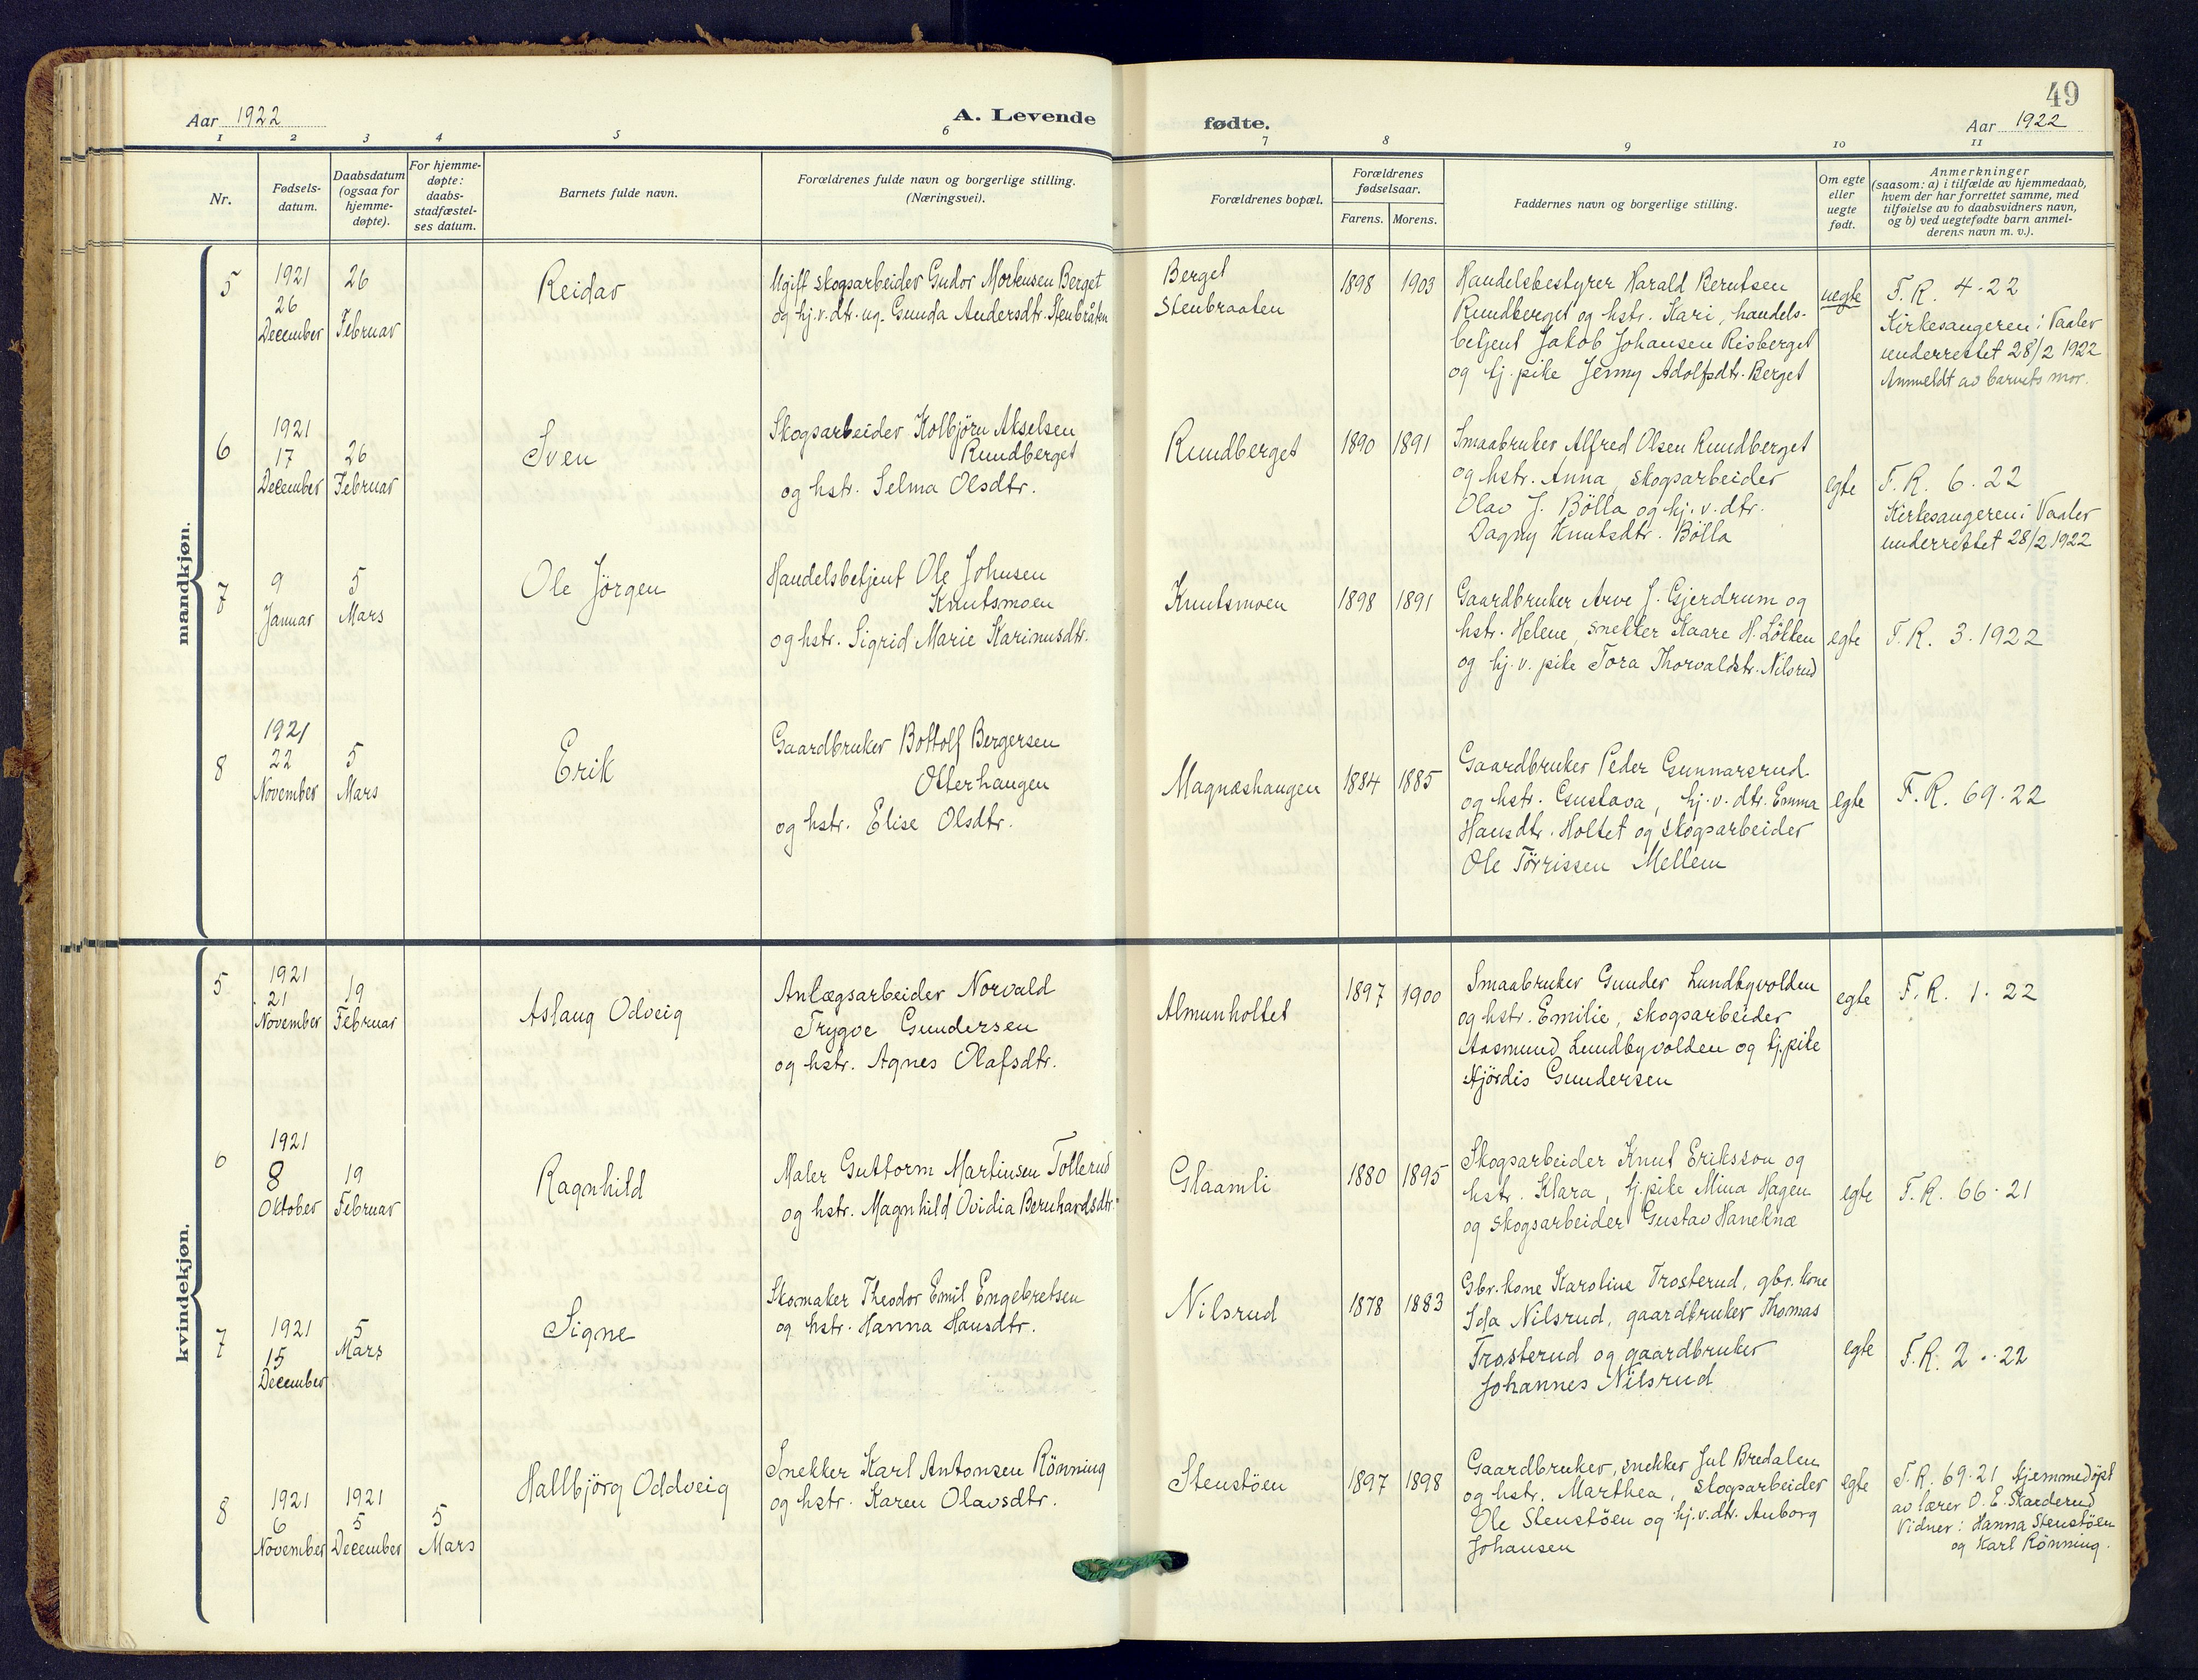 49
Aar 1922
A. Levende
fødte.
Aar 1922
1 2 3 4 5 6 7 8 9 10 11
Nr.
Fødsels-
datum.
Daabsdatum
(ogsaa for
hjemme-
døpte).
For hjemme-
døpte:
daabs-
stadfæstel-
ses datum.
Barnets fulde navn.
Forældrenes fulde navn og borgerlige stilling.
(Næringsvei).
Forældrenes bopæl.
Forældrenes
fødselsaar.
Farens. Morens.
Faddernes navn og borgerlige stilling.
Om egte
eller
uegte
født.
Anmerkninger
(saasom: a) i tilfælde av hjemmedaab,
hvem der har forrettet samme, med
tilføielse av to daabsvidners navn,
og b) ved uegtefødte barn anmel-
derens navn m. v.).
mandkjøn.
5
1921
26
December
26
Februar
Reidar
Ugift skogsarbeider Gudor Mortensen Berget
og hj.v.dtr. ug. Gunda Andersdtr. Stenbråten
Berget
Stenbraaten
1898 1903
Handelsbestyrer Harald Berntsen
Rundberget og hstr. Kari, handels-
betjent Jakob Johansen Risberget
og tj. pike Jenny Adolfsdtr. Berget
uegte
F.R. 4.22
Kirkesangeren i Vaaler
underrettet 28/2 1922
Anmeldt av barnets mor.
6
1921
17
December
26
Februar
Sven
Skogsarbeider Kolbjörn Akselsen
Rundberget
og hstr. Selma Olsdtr.
Rundberget
1890 1891
Smaabruker Alfred Olsen Rundberget
og hstr. Anna, skogsarbeider
Olav J. Bölla og hj.v.dtr.
Dagny Knutsdtr. Bölla
egte
F.R. 6.22
Kirkesangeren i Vaaler
underrettet 28/2 1922
7
9
Januar
5
Mars
Ole Jörgen
Handelsbetjent Ole Johnsen
Knutsmoen
og hstr. Sigrid Marie Karinusdtr.
Knutsmoen
1898 1891
Gaardbruker Arve J. Gjerdrum og
hstr. Helene, snekker Kaare H. Løkken
og hj.v. pike Tora Thorvaldstr. Nilsrud
egte
F.R. 3.1922
8
1921
22
November
5
Mars
Erik
Gaardbruker Bottolf Bergersen
Otterhaugen
og hstr. Elise Olsdtr.
Magnæshaugen
1884 1885
Gaardbruker Peder Gunnarsrud
og hstr. Gustava, hj.v.dtr. Emma
Hansdtr. Holtet og skogsarbeider
Ole Törrissen Mellem
egte
F.R. 69.22
kvindekjøn.
5
1921
21
November
19
Februar
Aslaug Odveig
Anlægsarbeider Norvald
Trygve Gundersen
og hstr. Agnes Olafsdtr.
Almunholtet
1897 1900
Smaabruker Gunder Lundbyvolden
og hstr. Emilie, skogsarbeider
Aasmund Lundbyvolden og tj.pike
Hjördis Gundersen
egte
F.R. 1.22
6
1921
8
Oktober
19
Februar
Ragnhild
Maler Guttorm Martinsen Tollerud
og hstr. Magnhild Ovidia Bernhardsdtr.
Glaamli
1880 1895
Skogsarbeider Knut Eriksson og
hstr. Klara, tj.pike Mina Hagen
og skogsarbeider Gustav Haneknæ
egte
F.R. 66.21
7
1921
15
December
5
Mars
Signe
Skomaker Theodor Emil Engebretsen
og hstr. Hanna Hansdtr.
Nilsrud
1878 1883
Gbr. kone Karoline Trosterud, gbr. kone
Ida Nilsrud, gaardbruker Thomas
Trosterud og gaardbruker
Johannes Nilsrud
egte
F.R. 2.22
8
1921
6
November
1921
5
December
5
Mars
Hallbjörg Oddveig
Snekker Karl Antonsen Rönning
og hstr. Karen Olavsdtr.
Stenstöen
1897 1898
Gaardbruker, snekker Jul Bredalen
og hstr. Marthea, skogsarbeider
Ole Stenstöen og hj.v.dtr. Anborg
Johansen
egte
F.R. 69.21 Hjemmedöpt
av lærer O. E. Skarderud
Vidner: Hanna Stenstöen
og Karl Rönning.